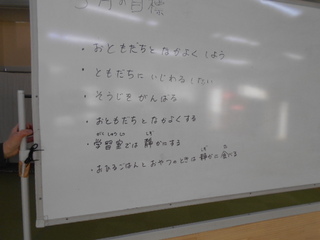 月の目標
・おともだちと なかよく しよう
・ともだちに いじわる しない
・そうじを がんばる
・おともだちと なかよくする
・学習室では 静かにする
がくしゅうしつ しず
・おひるごはんと おやつのときは 静かに 食べる
しず た